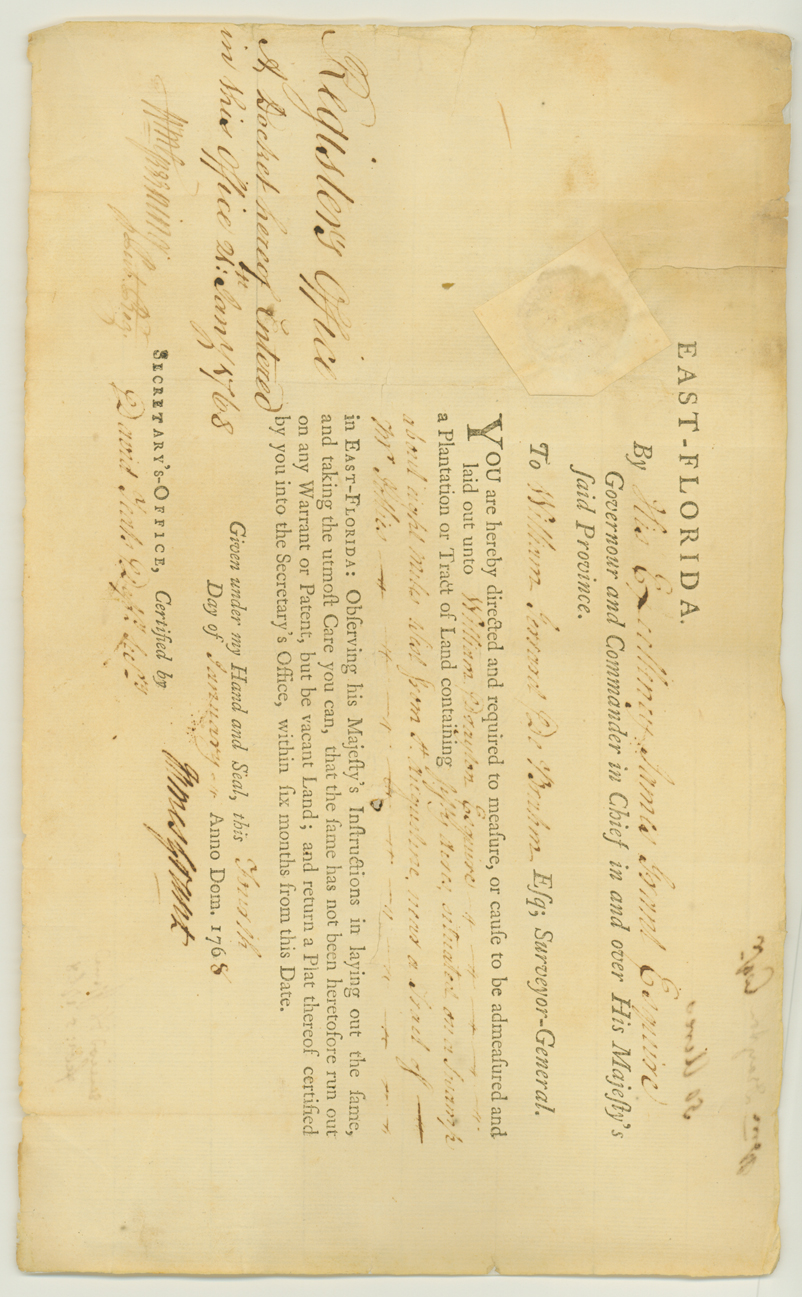 EAST-FLORIDA.
By His Excellency James Grant Esquire
Governour and Commander in Chief in and over His Majeſty's
ſaid Province.
To William Gerard De Brahm Eſq; Surveyor-General.
YOU are hereby directed and required to meaſure, or cauſe to be admeaſured and
laid out unto William Drayton Esquire
a Plantation or Tract of Land containing fifty acres, situated on a Swamp
about eight miles from St Augustine, near a Tract of
in EAST-FLORIDA: Obſerving his Majeſty's Inſtructions in laying out the ſame,
and taking the utmoſt Care you can, that the ſame has not been heretofore run out
on any Warrant or Patent, but be vacant Land; and return a Plat thereof certified
by you into the Secretary's Office, within ſix months from this Date.
Given under my Hand and Seal, this Fourth
Day of January Anno Dom. 1768
James Grant
SECRETARY'S-OFFICE, Certified by
David Yeats
Register's Office
A Docket hereof Entered
in this Office 21st Jany 1768